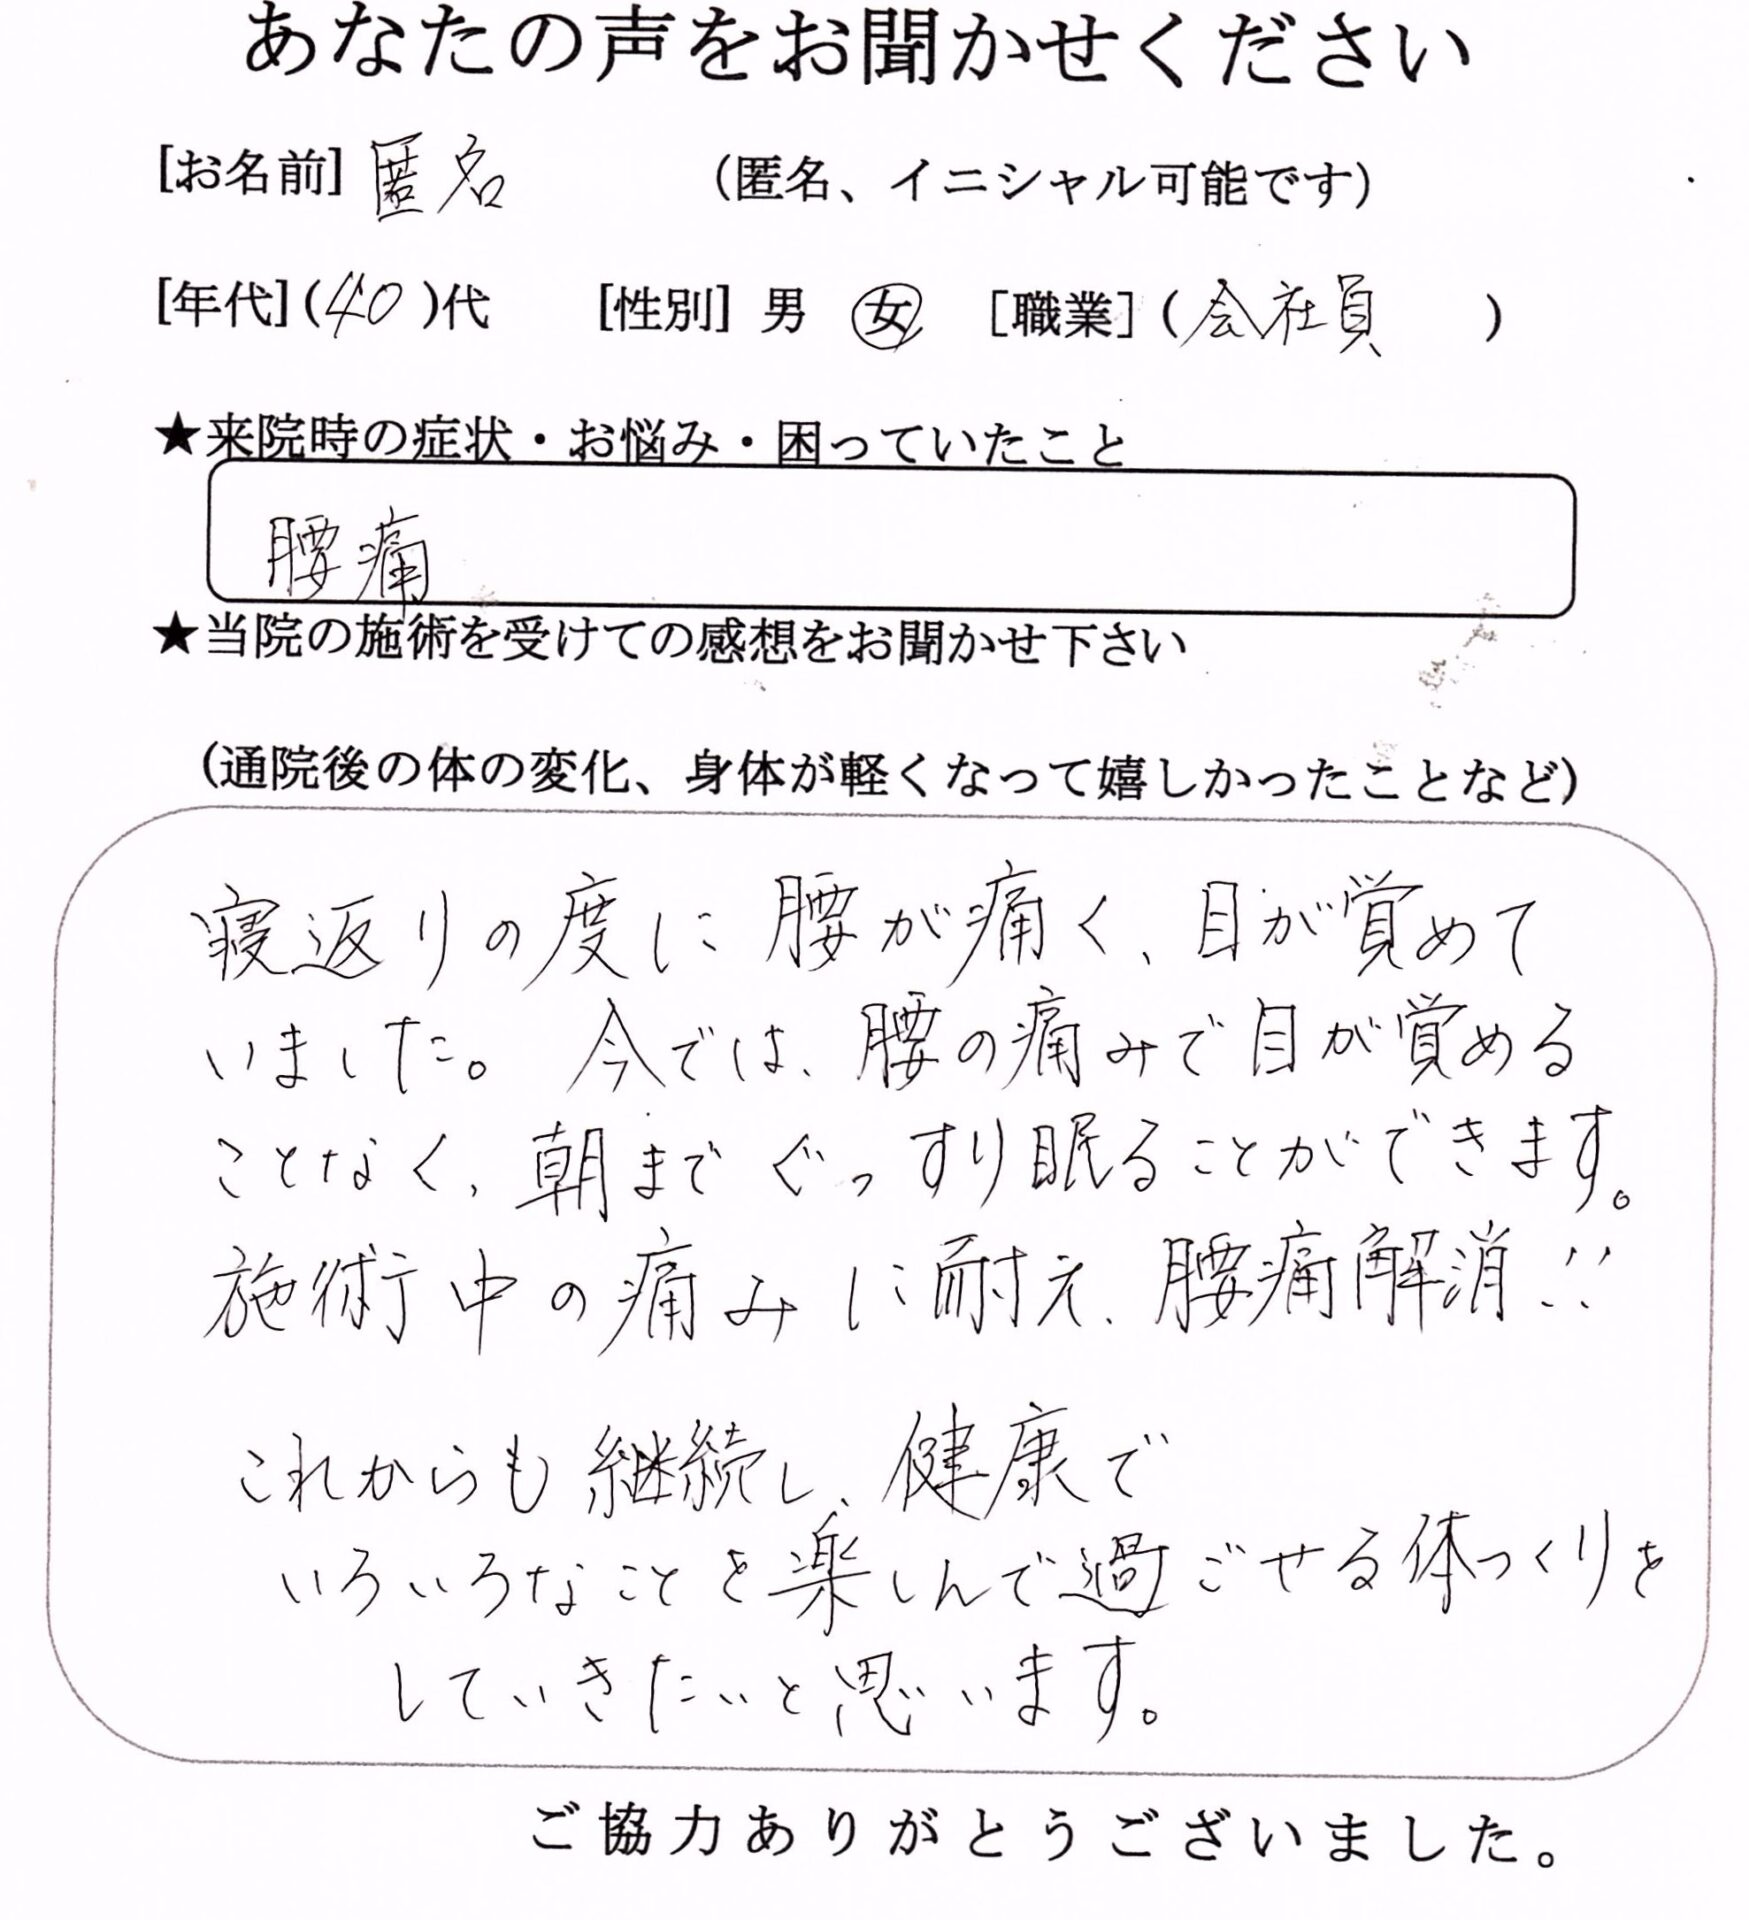 あなたの声をお聞かせください
[お名前] 匿名 (匿名、イニシャル可能です)
[年代](40)代 [性別] 男 女 [職業](会社員 )
★来院時の症状・お悩み・困っていたこと
腰痛
★当院の施術を受けての感想をお聞かせ下さい
(通院後の体の変化、身体が軽くなって嬉しかったことなど)
寝返りの度に腰が痛く、目が覚めて
いました。今では、腰の痛みで目が覚める
ことなく、朝までぐっすり眠ることができます。
施術中の痛みに耐え、腰痛解消!!
これからも継続し、健康で
いろいろなことを楽しんで過ごせる体つくりを
していきたいと思います。
ご協力ありがとうございました。